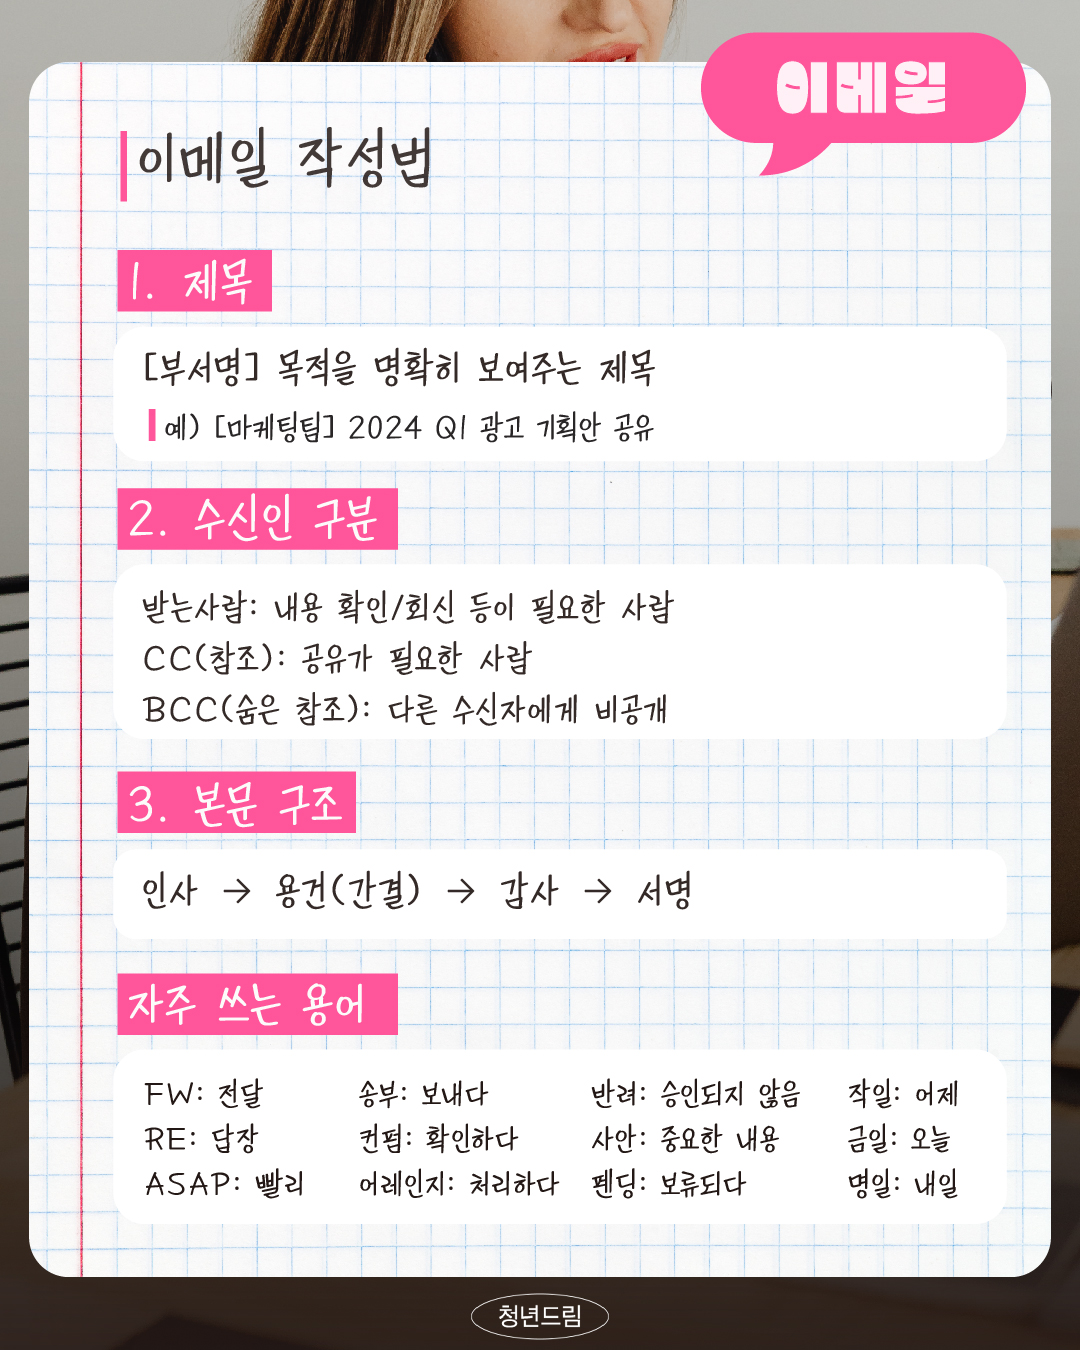 이메일
이메일 작성법
1. 제목
[부서명] 목적을 명확히 보여주는 제목
예) [마케팅팁] 2024 Q1 광고 기획안 공유
2. 수신인 구분
받는사람: 내용 확인/회신 등이 필요한 사람
CC(참조): 공유가 필요한 사람
BCC(숨은 참조): 다른 수신자에게 비공개
3. 본문 구조
인사 → 용건(간결) → 감사 → 서명
자주 쓰는 용어
FW: 전달 송부: 보내다 반려: 승인되지 않음 작일: 어제
RE: 답장 컨펌: 확인하다 사안: 중요한 내용 금일: 오늘
ASAP: 빨리 어레인지: 처리하다 펜딩: 보류되다 명일: 내일
청년드림